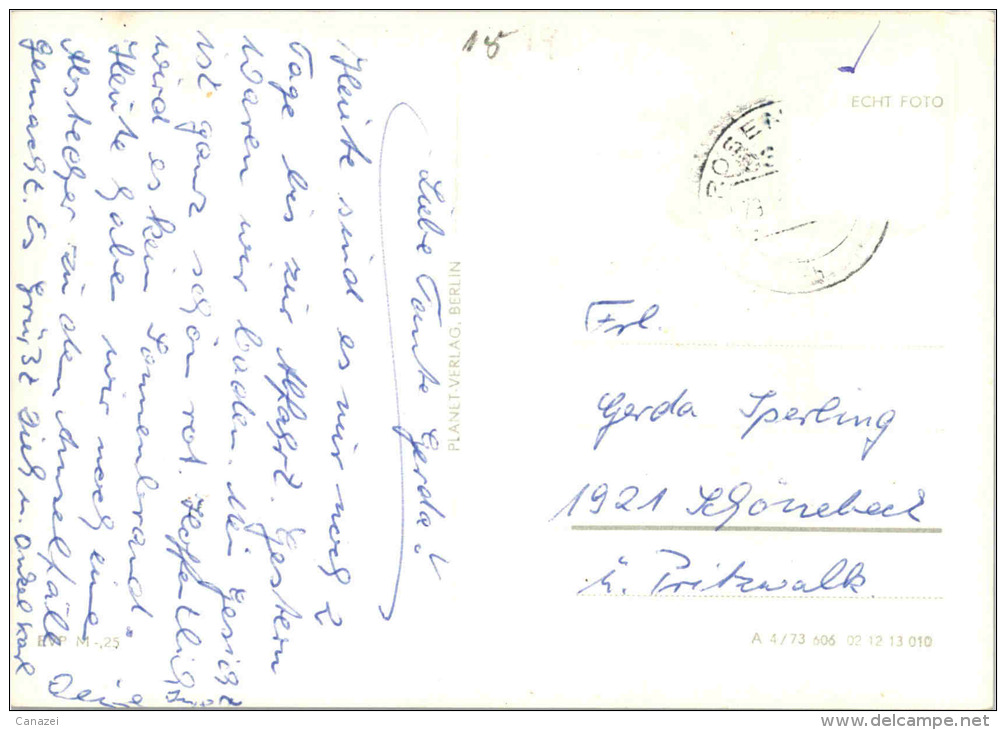 18
ECHT FOTO
Liebe Tante Gerda!
Heute sind es nur noch 2
Tage bis zur Abfahrt. Gestern
waren wir baden. Mein Gesicht
ist ganz schön rot. Hoffentlich
wird es kein Sonnenbrand.
Heute haben wir noch eine
Abstecher zu den
gemacht. Es grüßt Dich u. Onkel Karl
Frl.
Gerda Sperling
1921 Schönebeck
ü. Pritzwalk
PLANET-VERLAG, BERLIN
EVP M -,25
A 4/73 606 02 12 13 010
Canazei
www.delcampe.net